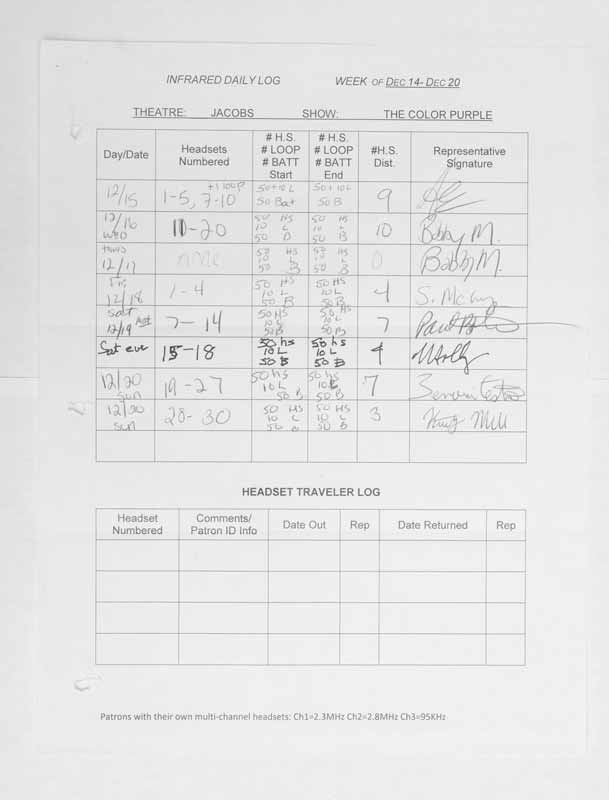 INFRARED DAILY LOG WEEK OF DEC 14- DEC 20
THEATRE: JACOBS SHOW: THE COLOR PURPLE
Day/Date Headsets Numbered # H.S. # LOOP # BATT Start # H.S. # LOOP # BATT End #H.S. Dist. Representative Signature
12/15 1-5, 7-10 +1 loop 50+10L 50 Bat 50+10L 50 B 9
12/16 WED 10-20 50 HS 10 L 50 B 50 HS 10 L 50 B 10 Bobby M.
thurs 12/17 none 50 HS 10 L 50 B 50 HS 10 L 50 B 0 Bobby M.
Fri 12/18 1-4 50 HS 10 L 50 B 50 HS 10 L 50 B 4
Sat 12/19 7-14 50 HS 10 L 50 B 50 HS 10 L 50 B 7 Paul
Sat eve 15-18 50 hs 10 L 50 B 50 hs 10 L 50 B 4 Molly
12/20 sun 19-27 50 hs 10 L 50 B 50 hs 10 L 50 B 7
12/20 sun 28-30 50 HS 10 L 50 B 50 HS 10 L 50 B 3
HEADSET TRAVELER LOG
Headset Numbered Comments/ Patron ID Info Date Out Rep Date Returned Rep
Patrons with their own multi-channel headsets: Ch1=2.3MHz Ch2=2.8MHz Ch3=95KHz